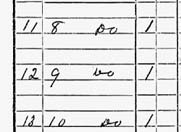 11 8 Do 1
12 9 Do 1
13 10 Do 1